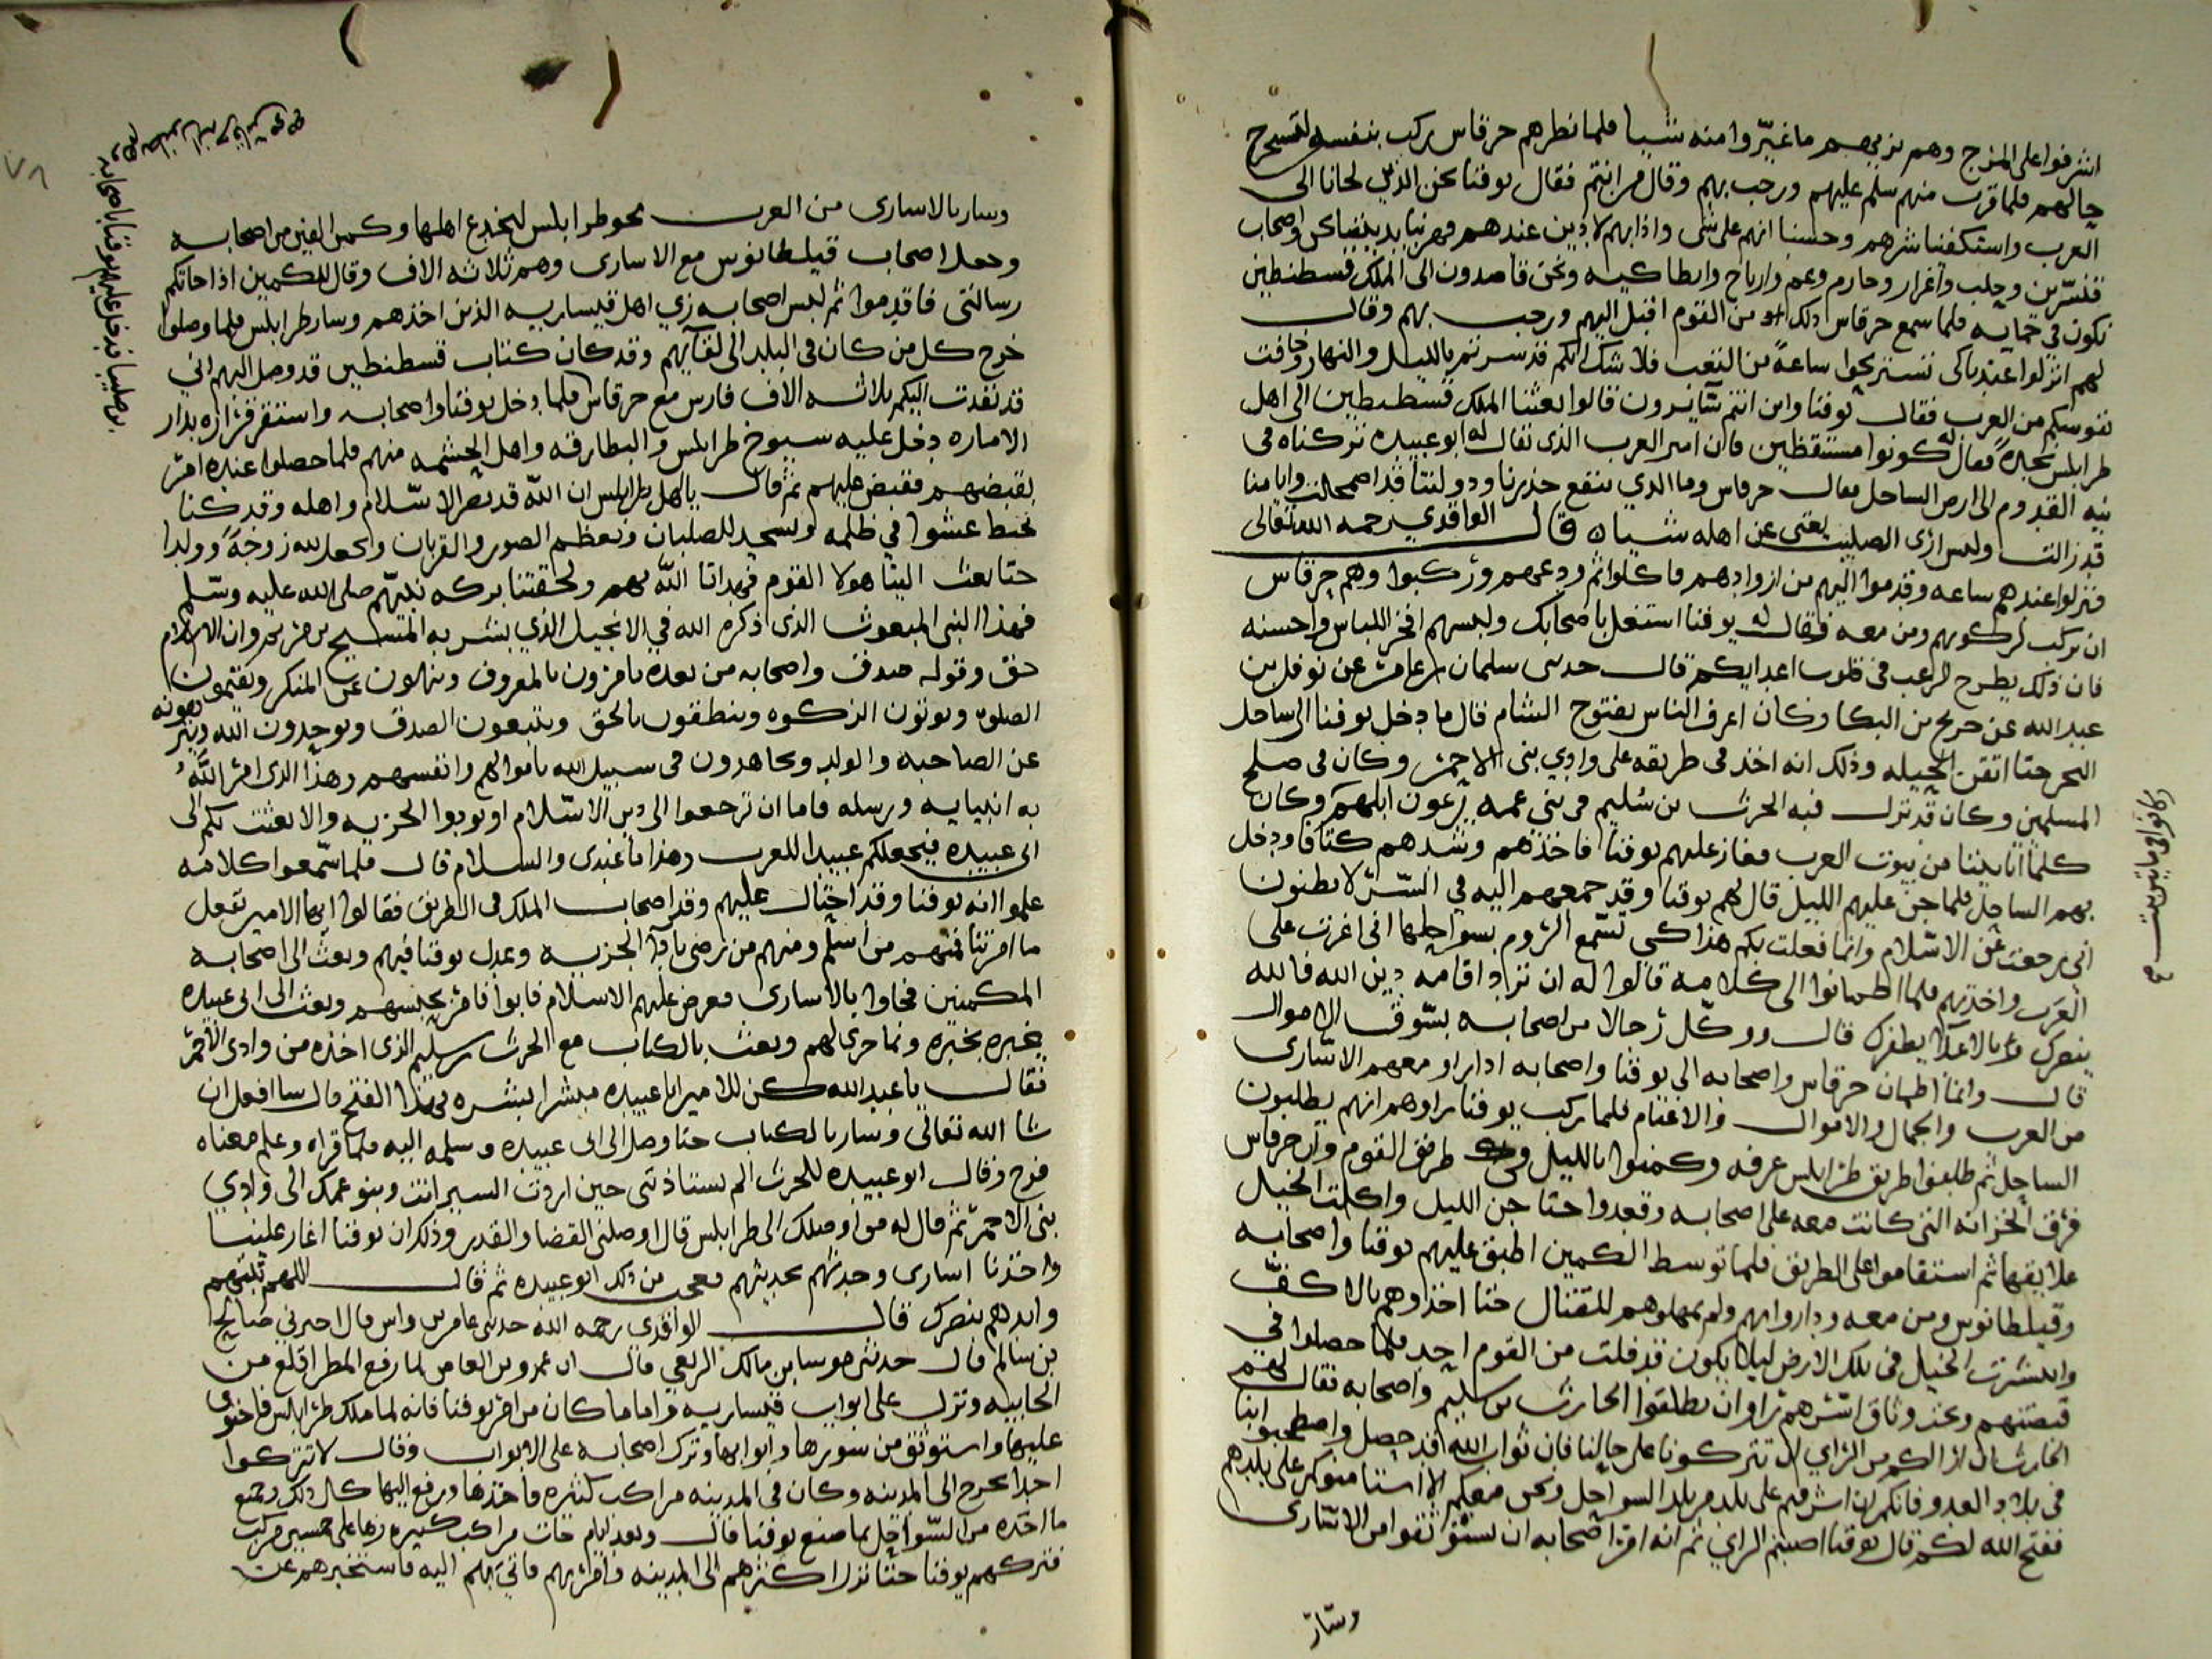 اشرفوا على المرج وهم بزيهم ما غيروا منه شيا فلما نظرهم جرفاس ركب بنفسه
حالهم فلما قرب منهم سلم عليهم ورحب بهم وقال من انتم فقال يوقنا نحن الذين لجانا الى
العرب واستكفينا شرهم وحسبنا انهم على شى واذا بهم لا دين عندهم فهربنا بديننا واصحاب
قنسرين وحلب واعزاز وحارم وعم وارتاح وانطاكيه ونحن قاصدون الى الملك قسطنطين
نكون في حمايه فلما سمع جرفاس ذلك من القوم اقبل اليهم ورحب بهم وقال
لهم انزلوا عندنا كى تستريحوا ساعة من التعب فلا شك انكم قد سرتم بالليل والنهار وخافت
نفوسكم من العرب فقال يوقنا واين انتم سايرون قالوا بعثنا الملك قسطنطين الى اهل
طرابلس نجدة فقال له كونوا مستيقظين فان امير العرب الذى يقال له ابو عبيده تركناه فى
نيه القدوم الى ارض الساحل فقال جرفاس وما الذي ينفع حذرنا ودولتنا قد اضمحلت وايامنا
قد زالت وليس ارى الصليب يغنى عن اهله شيا قال الواقدي رحمه الله تعالى
فنزلوا عندهم ساعه وقدموا اليهم من ازوادهم فاكلوا ثم ودعهم وركبوا وهم جرفاس
ان يركب لركوبهم ومن معه فقال له يوقنا اشتغل باصحابك والبسهم افخر اللباس واحسنه
فان ذلك يطرح الرعب فى قلوب اعدايكم قال حدثنى سليمان بن عامر عن نوفل بن
عبد الله عن جريح بن البكا وكان اعرف الناس بفتوح الشام قال ما دخل يوقنا الى ساحل
البحر حتا اتقن الحيله وذلك انه اخذ فى طريقه على وادي بنى الاحمر وكان فى صلح
المسلمين وكان قد نزل فيه الحرث بن سليم فى بنى عمه يرعون ابلهم وكان
من بيوت العرب فغار عليهم يوقنا فاخذهم وشدهم كتافا ودخل
بهم الساحل فلما جن عليهم الليل قال لهم يوقنا وقد جمعهم اليه في السر لا تظنون
انى رجعت عن الاسلام وانما فعلت بكم هذا كى تسمع الروم بسواحلها انى اغرت على
العرب واخذتهم فلما اطمانوا الى كلامه قالوا له ان تراد اقامه دين الله فالله
ينصرك وبالاعدا يظفرك قال ووكل رجالا من اصحابه بسوق الاموال
قال وانما اطمان جرفاس واصحابه الى يوقنا واصحابه اذ راو معهم الاسارى
من العرب والجمال والاموال والاغنام فلما ركب يوقنا راوهم انهم يطلبون
الساحل ثم طلبوا طريق طرابلس عرقه وكمنوا بالليل طريق القوم وان جرفاس
فرق الخزانه التى كانت معه على اصحابه وقعدوا حتا جن الليل واكلت الخيل
علايقها ثم استقاموا على الطريق فلما توسط الكمين اطبق عليهم يوقنا واصحابه
وفيلطانوس ومن معه وداروا بهم ولم يمهلوهم للقتال حتا اخذوهم بالاكف
وانتشرت الخيل فى تلك الارض ليلا يكون قد فلت من القوم احد فلما حصلوا في
قبضتهم وعند وثاق اسرهم اراد ان يطلقوا الحارث بن سليم واصحابه فقال لهم
الحارث ان الراي ان تتركونا على حالنا فان ثواب الله قد حصل
فى بلاد العدو فانكم لا اشرفتم على بلد من بلد السواحل ونحن معكم الا
ففتح الله لكم قال يوقنا اصبتم الراي ثم انه امر اصحابه ان يستوثقوا من الاسارى
وسار
وكانوا فى مايتين بيت
وسار بالاسارى من العرب نحو طرابلس ليخدع اهلها وكمن الفين من اصحابه
وجعل اصحاب فيلطانوس مع الاسارى وهم ثلاثه الاف وقال للكمين اذا جاتكم
رسالتى فاقدموا ثم لبس اصحابه زي اهل قيساريه الذين اخذهم وسار طرابلس فلما وصلوا
خرج كل من كان فى البلد الى لقايهم وقد كان كتاب قسطنطين قد وصل اليهم انى
قد نفذت اليكم ثلاثه الاف فارس مع جرفاس فلما دخل يوقنا واصحابه واستقر قراره بدار
الاماره دخل عليه شيوخ طرابلس والبطارقه واهل الحشمه منهم فلما حصلوا عنده امر
بقبضهم فقبض عليهم ثم قال يا اهل طرابلس ان الله قد نصر الاسلام واهله وقد كنا
نخبط عشوا في ظلمه ونسجد للصلبان ونعظم الصور والقربان ونجعل لله زوجة وولدا
حتا بعث الينا هولا القوم فهدانا الله بهم ولحقتنا بركه نبيهم صلى الله عليه وسلم
فهذا النبى المبعوث الذى ذكره الله في الانجيل الذي بشر به المسيح بن مريم وان الاسلام
حق وقوله صدق واصحابه من بعده يامرون بالمعروف وينهون عن المنكر ويقيمون
الصلوه ويوتون الزكوه وينطقون بالحق ويتبعون الصدق ويوحدون الله وينزهونه
عن الصاحبه والولد ويجاهدون فى سبيل الله باموالهم وانفسهم وهذا الذى امر الله
به انبيايه ورسله فاما ان ترجعوا الى دين الاسلام او تودوا الجزيه والا بعثت بكم الى
ابى عبيده فيجعلكم عبيدا للعرب وهذا ما عندى والسلام قال فلما سمعوا كلامه
علموا انه يوقنا وقد احتال عليهم وقد اصحاب الملك فى الطريق فقالوا ايها الامير نفعل
ما امرتنا فمنهم من اسلم ومنهم من رضى باداء الجزيه وعدل يوقنا فيهم وبعث الى اصحابه
المكمنين فجاوا بالاسارى فعرض عليهم الاسلام فابوا فامر بحبسهم وبعث الى ابى عبيده
يخبره بخبره وبما جرى لهم وبعث بالكتاب مع الحرث بن سليم الذى اخذه من وادى الاحمر
فقال يا عبد الله كن للامير ابا عبيده مبشرا بشره فى هذا الفتح قال سا افعل ان
شا الله تعالى وسار بالكتاب حتا وصل الى ابى عبيده وسلمه اليه فلما قراه وعلم معناه
فرح وقال ابو عبيده للحرث الم تستاذنى حين اردت السير انت وبنو عمك الى وادي
بنى الاحمر ثم قال له من اوصلك الى طرابلس قال اوصلنى القضا والقدر وذلك ان يوقنا اغار علينا
واخذنا اسارى وحدثهم بحديثهم فعجب من ذلك ابو عبيده ثم قال اللهم ثبتهم
وايدهم بنصرك قال الواقدى رحمه الله حدثنى عامر بن واس قال اخبرني
بن سالم قال حدثنى موسا بن مالك الربعي قال ان عمرو بن العاص لما رفع المطر اقلع من
الجابيه ونزل على ابواب قيساريه واما ما كان من امر يوقنا فانه لما ملك طرابلس فاحتوى
عليها واستوثق من سورها وابوابها وترك اصحابه على الابواب وقال لا تتركوا
احدا يخرج الى المدينه وكان فى المدينه مراكب كثيره فاخذها ورفع اليها كل ذلك
ما اخذه من السواحل بما صنع يوقنا قال وبعد ايام جات مراكب كثيره زها على خمسين مركب
فتركهم يوقنا حتا نزل اكثرهم الى المدينه وامر بهم فاتى بهم اليه فاستخبرهم عن